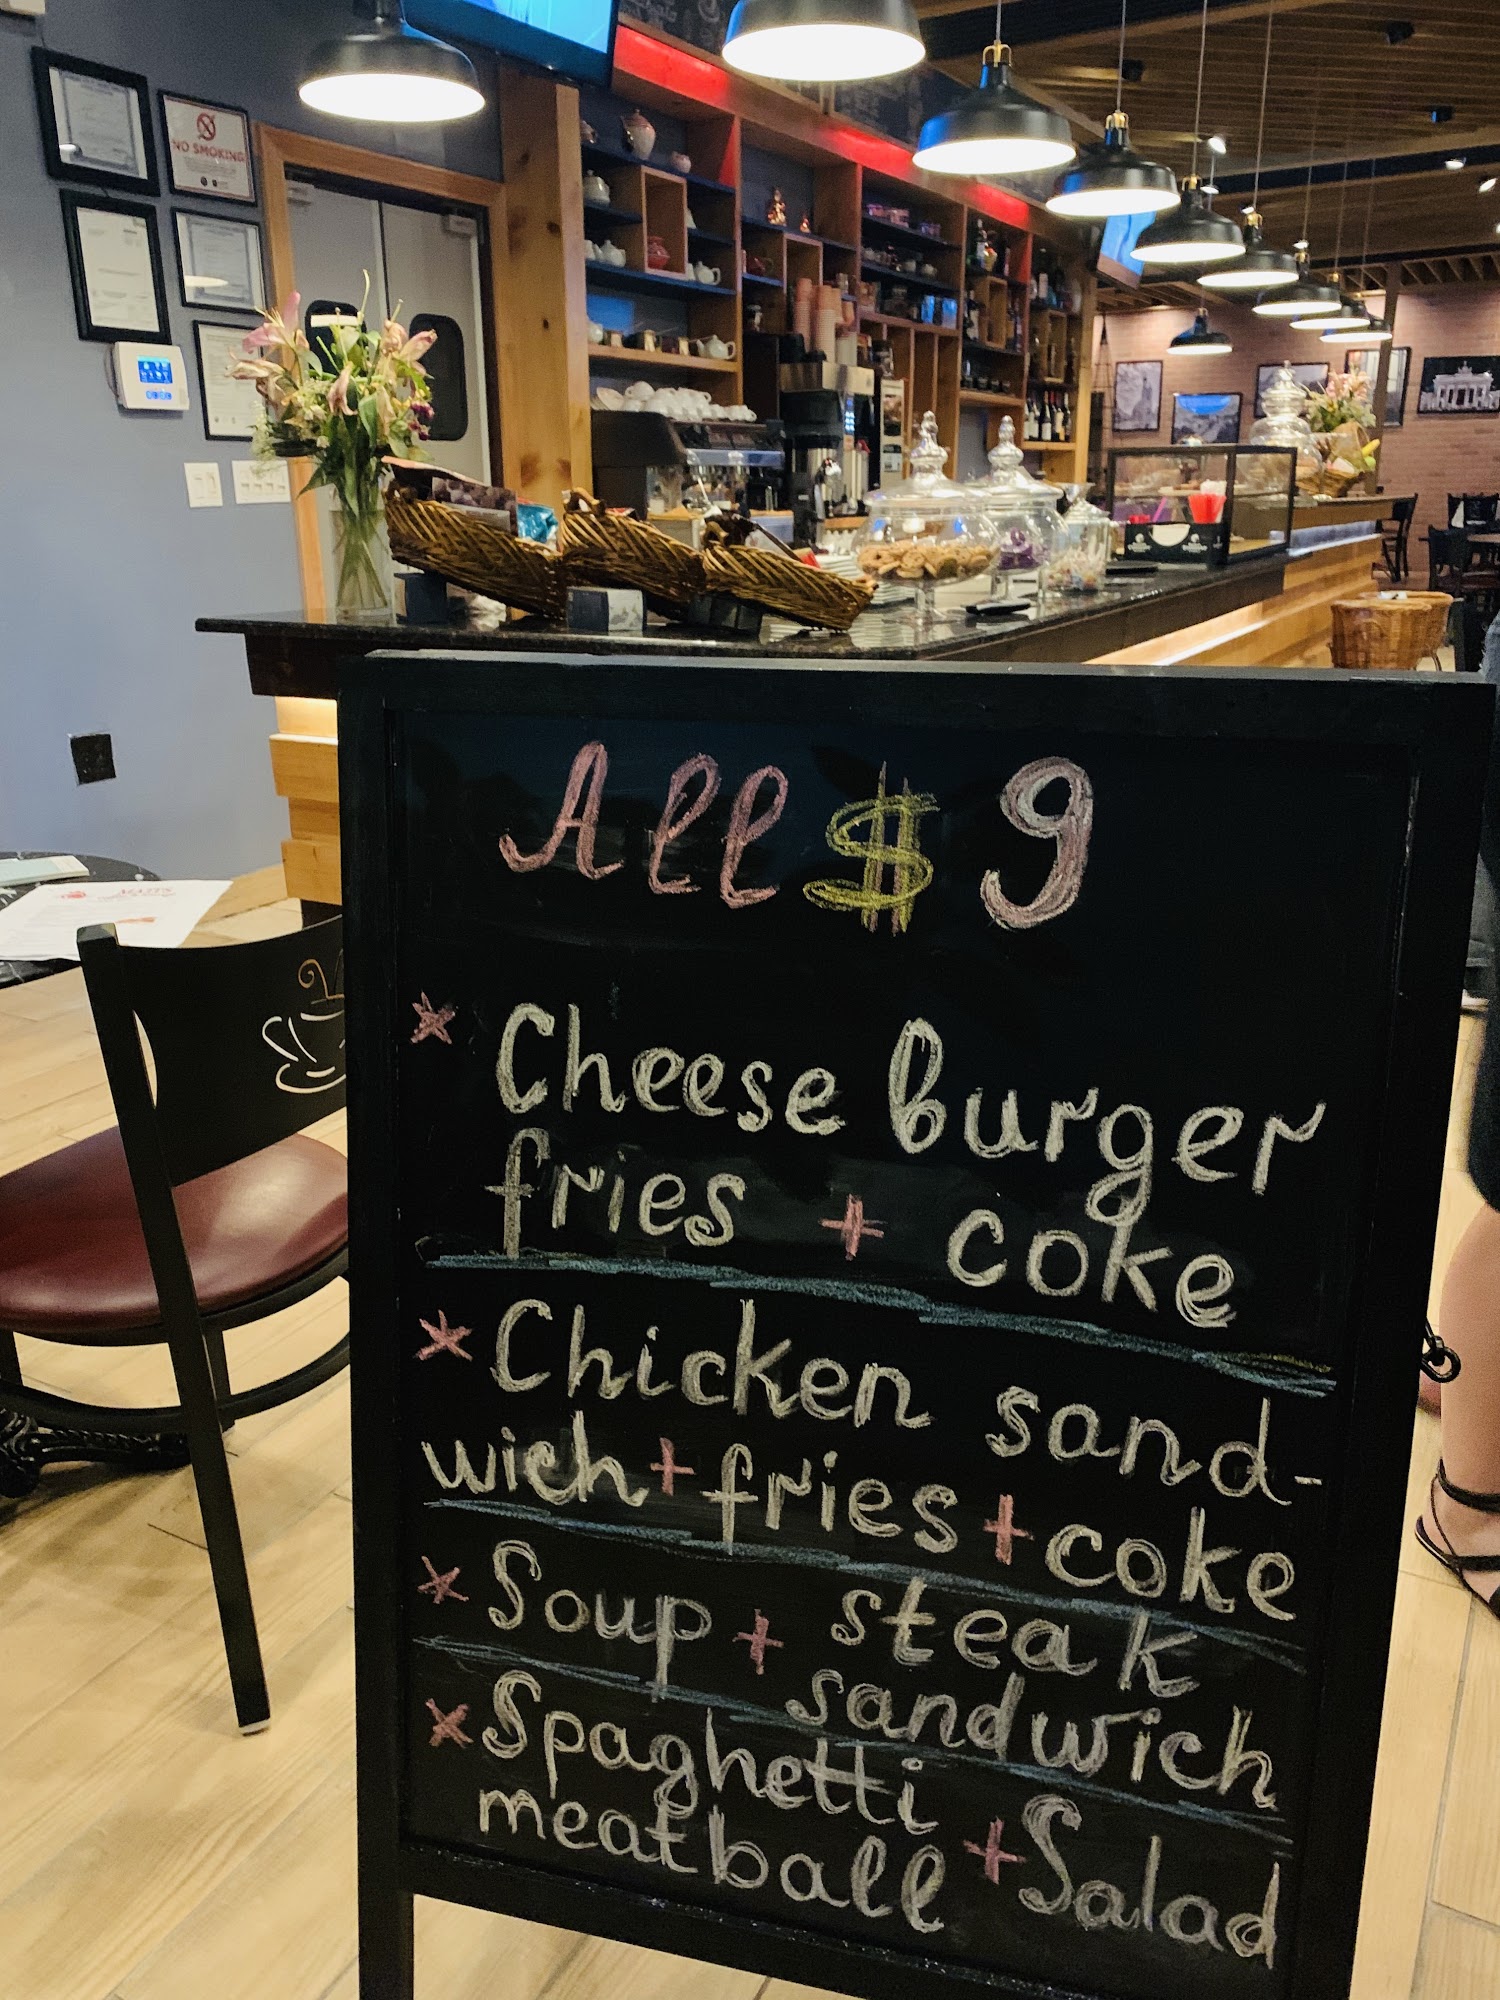 NO SMOKING
All $ 9
* Cheese burger
fries + coke
* Chicken sand-
wich + fries + coke
* Soup + steak
sandwich
* Spaghetti
meatball + Salad